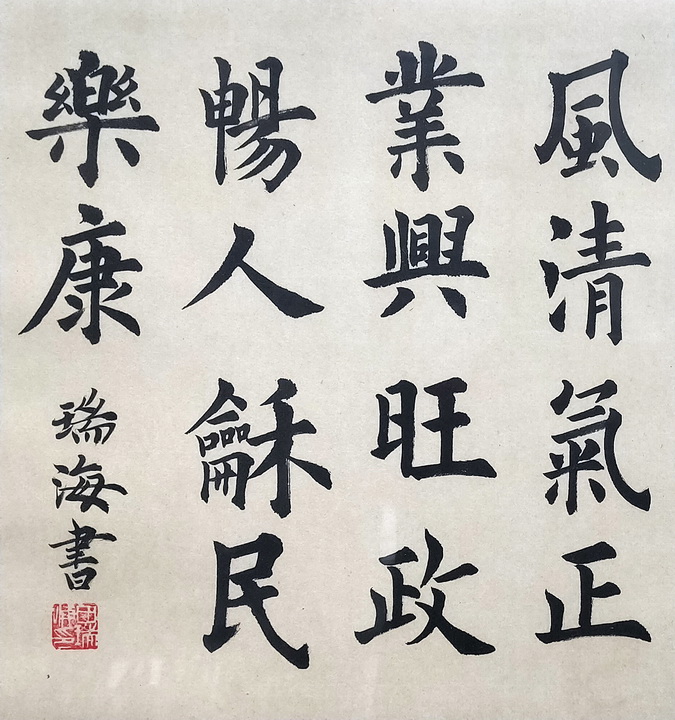 風清氣正
業興旺政
暢人龢民
樂康
瑞海書